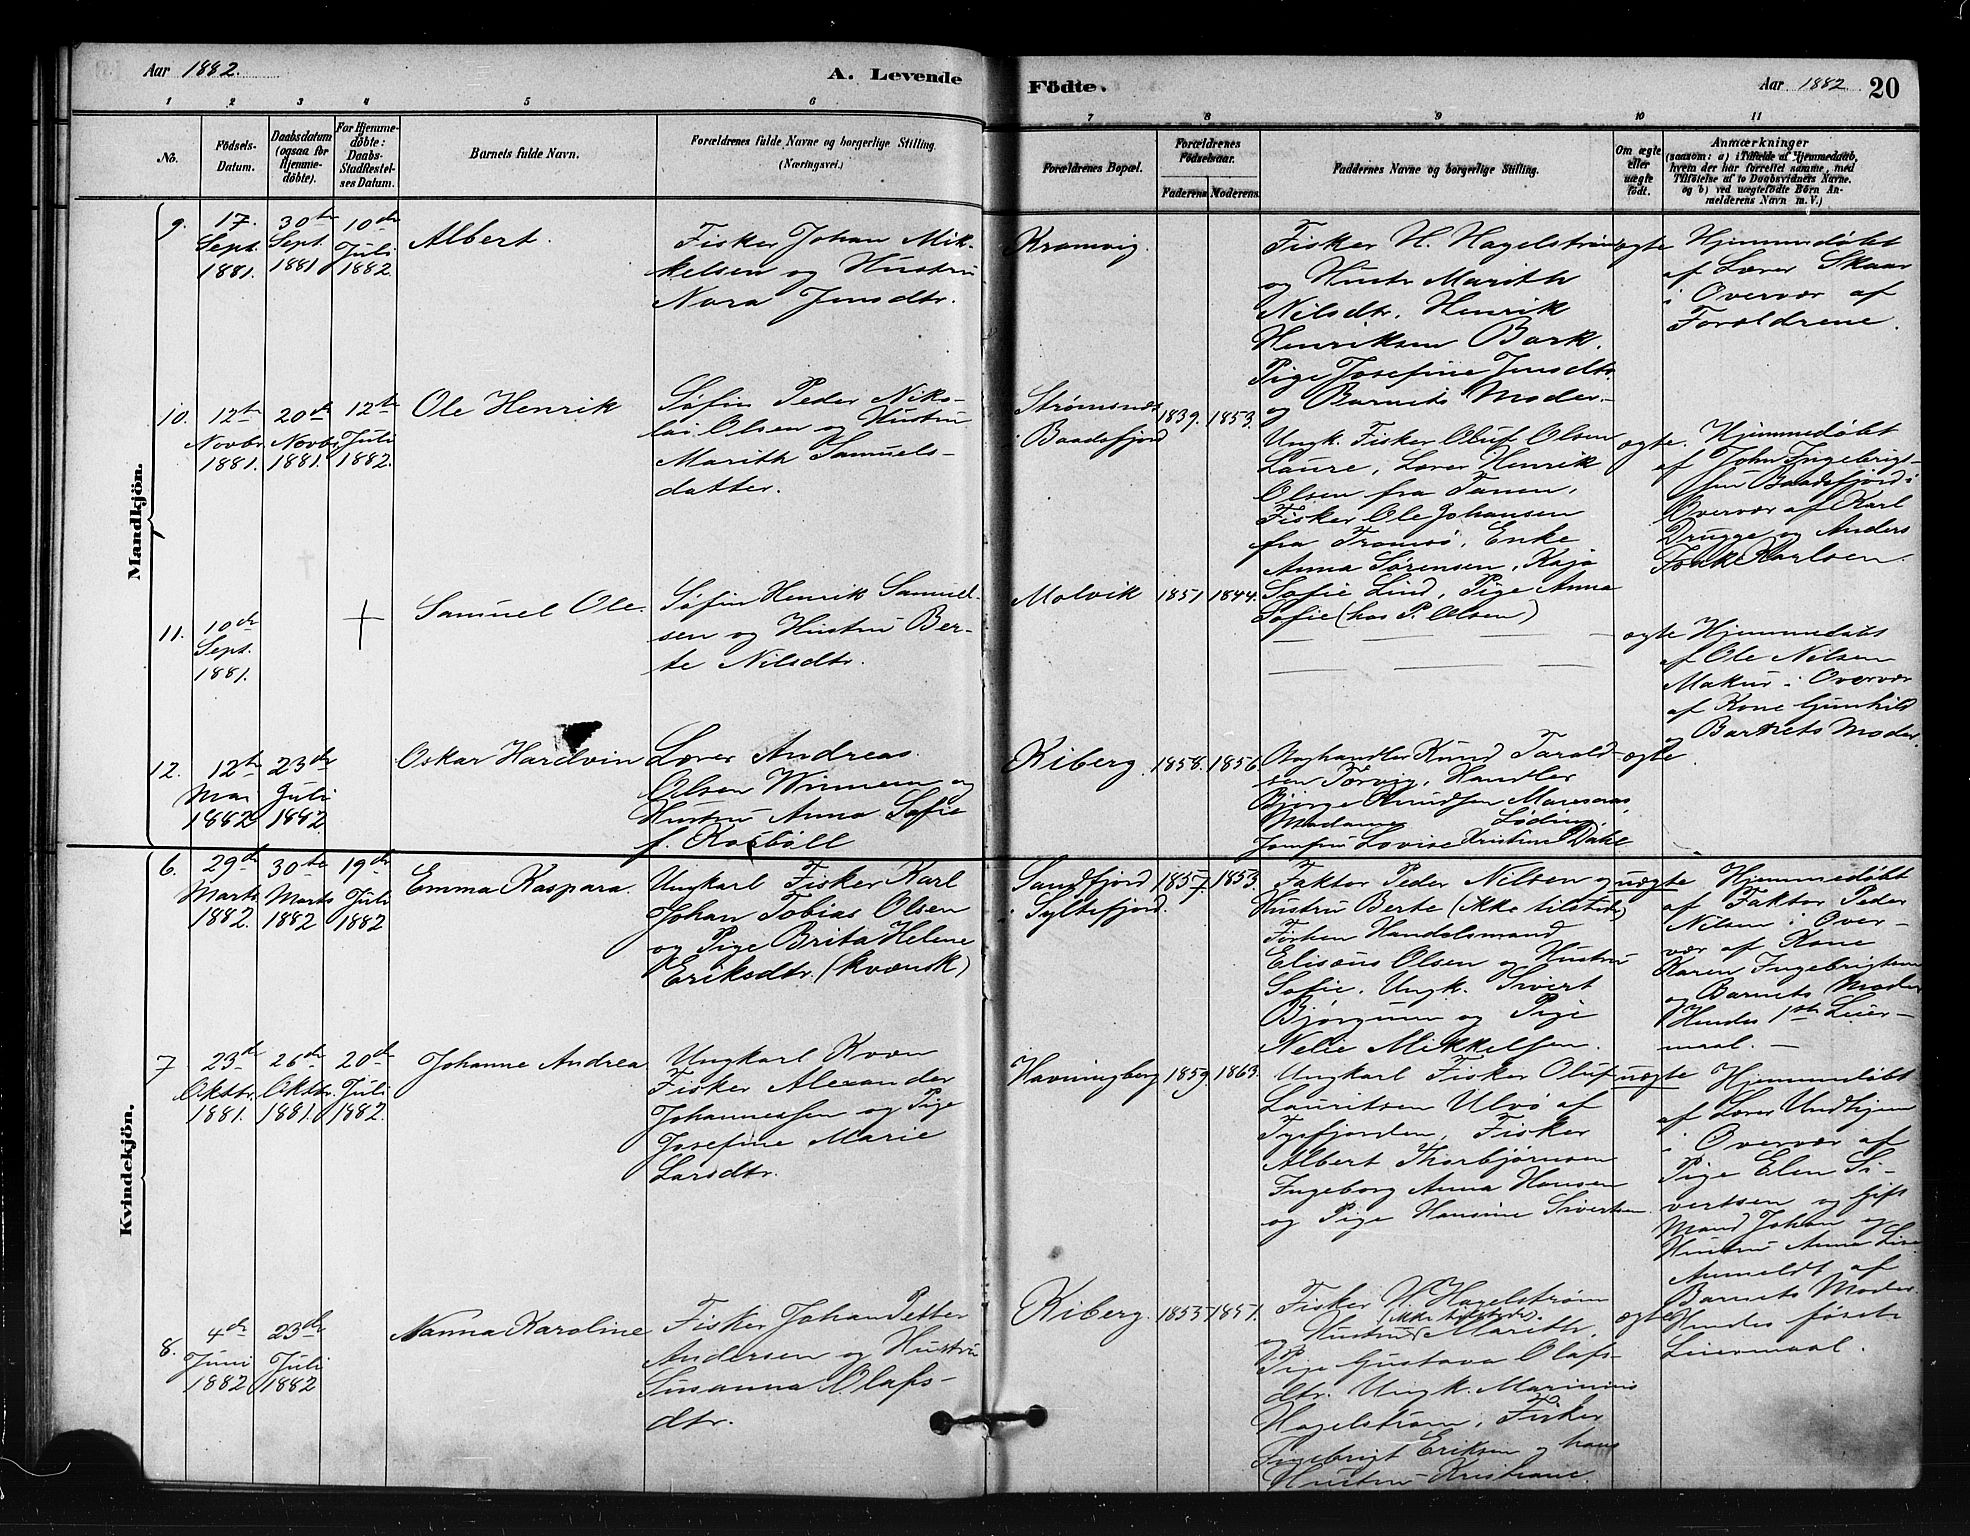 Aar 1882.
A. Levende
Födte.
Aar 1882.
20
1 2 3 4 5 6 7 8 9 10 11
No.
Födsels-
Datum.
Daabsdatum
(ogsaa for
Hjemme-
döbte).
For Hjemme-
döbte:
Daabs-
Stadfæstel-
ses Datum.
Barnets fulde Navn.
Forældrenes fulde Navne og borgerlige Stilling.
(Næringsvei.)
Forældrenes Bopæl.
Forældrenes
Födselsaar.
Faderens. Moderens.
Faddernes Navne og borgerlige Stilling.
Om ægte
eller
uægte
födt.
Anmærkninger
(saasom: a) i Tilfælde af Hjemmedaab,
hvem der har forrettet samme, med
Tilföielse af to Daabsvidners Navne.
og b) ved uægtefödte Börn An-
melderens Navn m. V.)
Mandkjön.
9.
17.
Sept.
1881.
30te
Sept.
1881
10de
Juli
1882.
Albert.
Fisker Johan Mik-
kelsen og Hustru
Nora Jensdtr.
Kramvig.
Fisker H. Hagelstrøm
og Hustr. Marith
Nilsdtr. Henrik
Henriksen Bark.
Pige Josefine Jensdtr.
og Barnets Moder.
ægte
Hjemmedøbt
af Lærer Skaar
i Overvær af
Forældrene.
10.
12te
Novbr.
1881.
20de
Novbr.
1881.
12te
Juli
1882.
Ole Henrik
Søfin Peder Niko-
lai Olsen og Hustru
Marith Samuels-
datter.
Strømsnæs
i Baadsfjord
1839. 1853.
Ungk. Fisker Oluf Olsen
Laure, Lærer Henrik
Olsen fra Tanen,
Fisker Ole Johansen
fra Tromsø, Enke
Anna Sørensen, Kaja
Sofie Lind, Pige Anna
Sofie (hos P. Olsen)
ægte.
Hjemmedøbt
af John Ingebrigt-
sen Baadsfjord i
Overvær af Karl
Drugge og Anders
Karlsen.
11.
10de
Sept.
1881.
+
Samuel Ole.
Søfin Henrik Samuel-
sen og Hustru Ber-
te Nilsdtr.
Molvik 1851 1844.
ægte
Hjemmedøbt
af Ole Nilsen
Makur i Overvær
af Kone Gunhild
og Barnets Moder.
12.
12te
Mai
1882
23de
Juli
1882
Oskar Hardvin
Lærer Andreas
Olsen Winnem og
Hustru Anna Sofie
f. Kosböll
Kiberg. 1858. 1856.
Knud Tarald-
sen Torvig, Handler
Bjørge Knudsen
Madame Løding
Jomfru Lovise Kristine Dahl
ægte.
Kvindekjön.
6.
29de
Marts
1882.
30te
Marts
1882
19de
Juli
1882
Emma Kaspara.
Ungkarl Fisker Karl
Johan Tobias Olsen
og Pige Brita Helene
Eriksdtr. (kvænsk)
Sandfjord
i Syltefjord.
1857. 1853.
Faktor Peder Nilsen og
Hustru Berte (ikke tilstede)
Forhen Handelsmand
Elisæus Olsen og Hustru
Sofie. Ungk. Sivert
Bjørgum og Pige
Nelie Mikkelsen.
uægte
Hjemmedøbt
af Faktor Peder
Nilsen i Over-
vær af Kone
Karen Ingebrigtsen
og Barnets Moder
Hendes 1ste Leier-
maal.
7
23de
Oktbr.
1881.
26de
Oktbr.
1881.
20de
Juli
1882.
Johanne Andrea
Ungkarl Kvæn
Fisker Alexander
Johannessen og Pige
Josefine Marie
Larsdtr.
Havningberg 1859. 1863.
Ungkarl Fisker Oluf
Lauritsen Ulvö af
Tysfjorden, Fisker
Albert Thorbjørnsen
Ingeborg Anna Hansen
og Pige Hansine Sivertsen.
uægte
Hjemmedøbt
af Lærer Undhjem
i Overvær af
Pige Elen Si-
vertsen og gift
Mand Johan og
Hustru Anna
Anmeldt af
Barnets Moder
Hendes første
Leiermaal.
8.
4de
Juni
1882
23de
Juli
1882
Nanna Karoline
Fisker Johan Petter
Andersen og Hustru
Susanna Olafs-
dtr.
Kiberg. 1853 1851.
Fisker H. Hagelstrøm
(ikke tilstede).
og Hustru Marith.
Pige Gustava Olafs-
dtr. Ungk. Marinius
Hagelstrøm, Fisker
Ingebrigt Eriksen og hans
Hustru Kristiane.
ægte